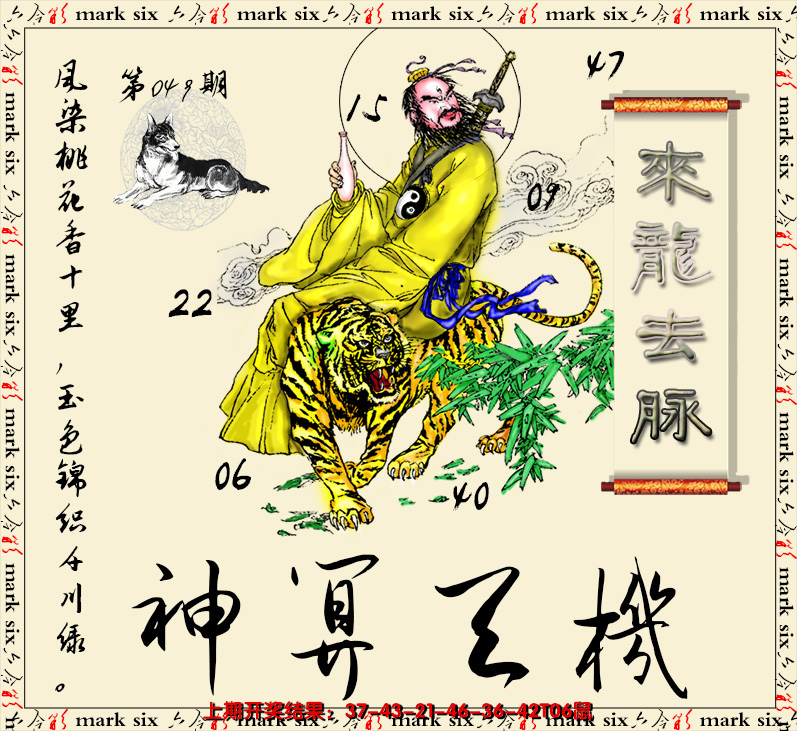 六合彩 mark six 六合彩 mark six 六合彩 mark six 六合彩 mark six 六合彩 mark six
第049期
47
15
09
22
06
40
來龍去脉
风染桃花香十里，玉色锦织千川绿。
神算天機
上期开奖结果：37-43-21-46-36-42T06鼠
六合彩 mark six 六合彩 mark six 六合彩 mark six 六合彩 mark six 六合彩 mark six